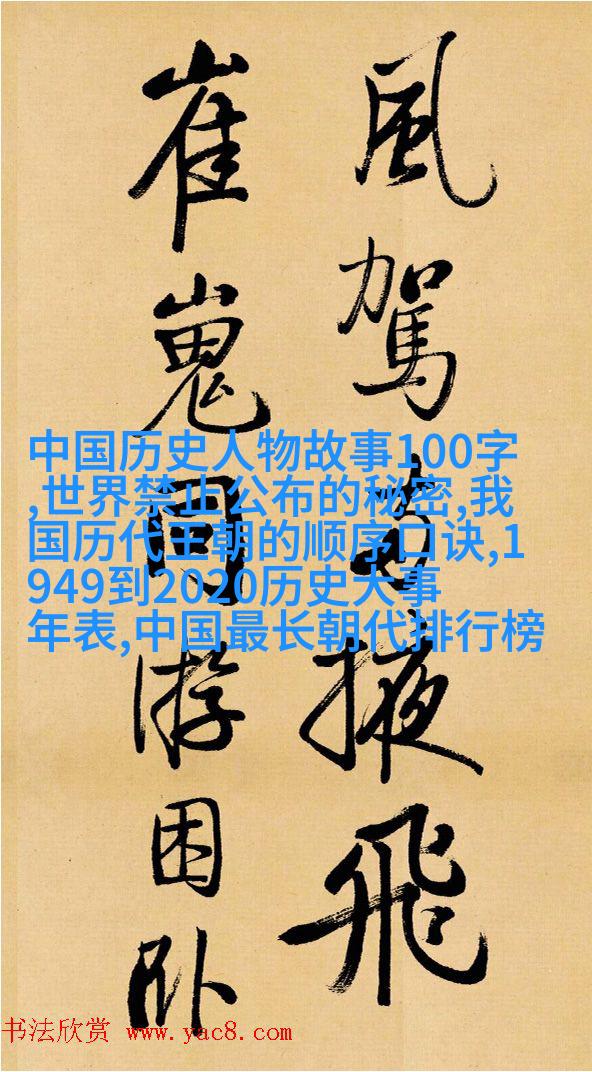 風駕掖飛
崔嵬同游困卧
中国历史人物故事100字
,世界禁止公布的秘密,我
国历代王朝的顺序口诀,1
949到2020历史大事
年表,中国最长朝代排行榜
书法欣赏 www.yac8.com